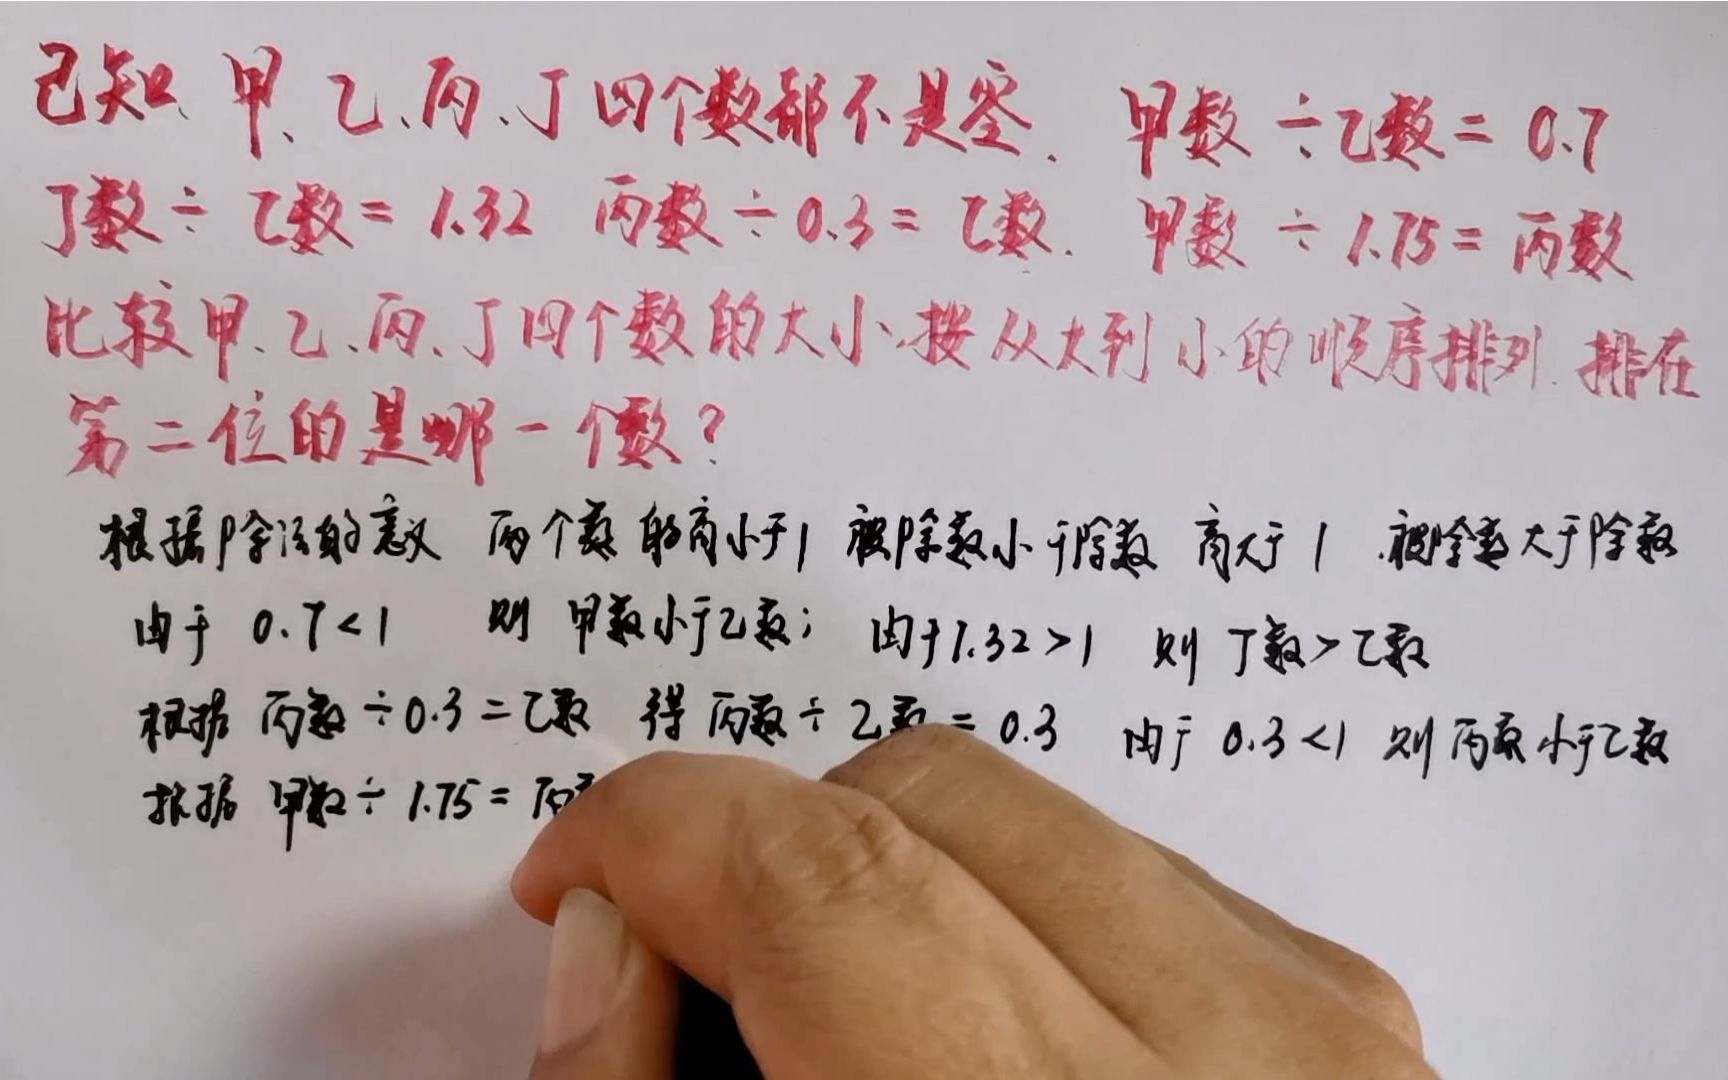 已知甲、乙、丙、丁四个数都不是零、甲数÷乙数=0.7
丁数÷乙数=1.32 丙数÷0.3=乙数. 甲数÷1.75=丙数
比较甲、乙、丙、丁四个数的大小,按从大到小的顺序排列.排在
第二位的是哪一个数?
根据除法的意义 两个数的商小于1 被除数小于除数 商大于1 .被除数大于除数
由于 0.7<1 则 甲数小于乙数; 由于1.32>1 则 丁数>乙数
根据 丙数÷0.3=乙数 得 丙数÷乙数=0.3 由于 0.3<1 则 丙数小于乙数
根据 甲数÷1.75=丙